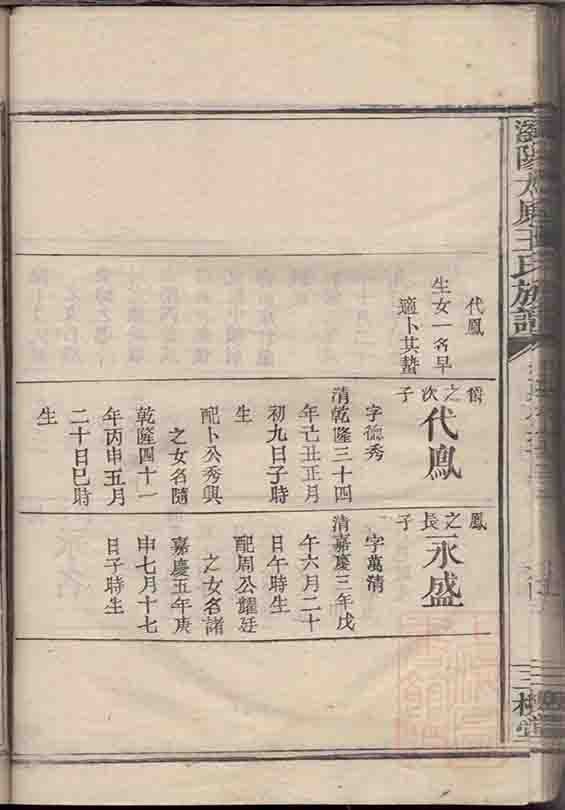 瀏陽太原王氏族譜
三槐堂
代鳳
生女一名早
適卜其蟄
之次子
代鳳
字德秀
清乾隆三十四
年己丑正月
初九日子時
生
配卜公秀興
之女名隨
乾隆四十一
年丙申五月
二十日巳時
生
鳳之長子
永盛
字萬清
清嘉慶三年戊
午六月二十
日午時生
配周公耀廷
之女名諸
嘉慶五年庚
申七月十七
日子時生